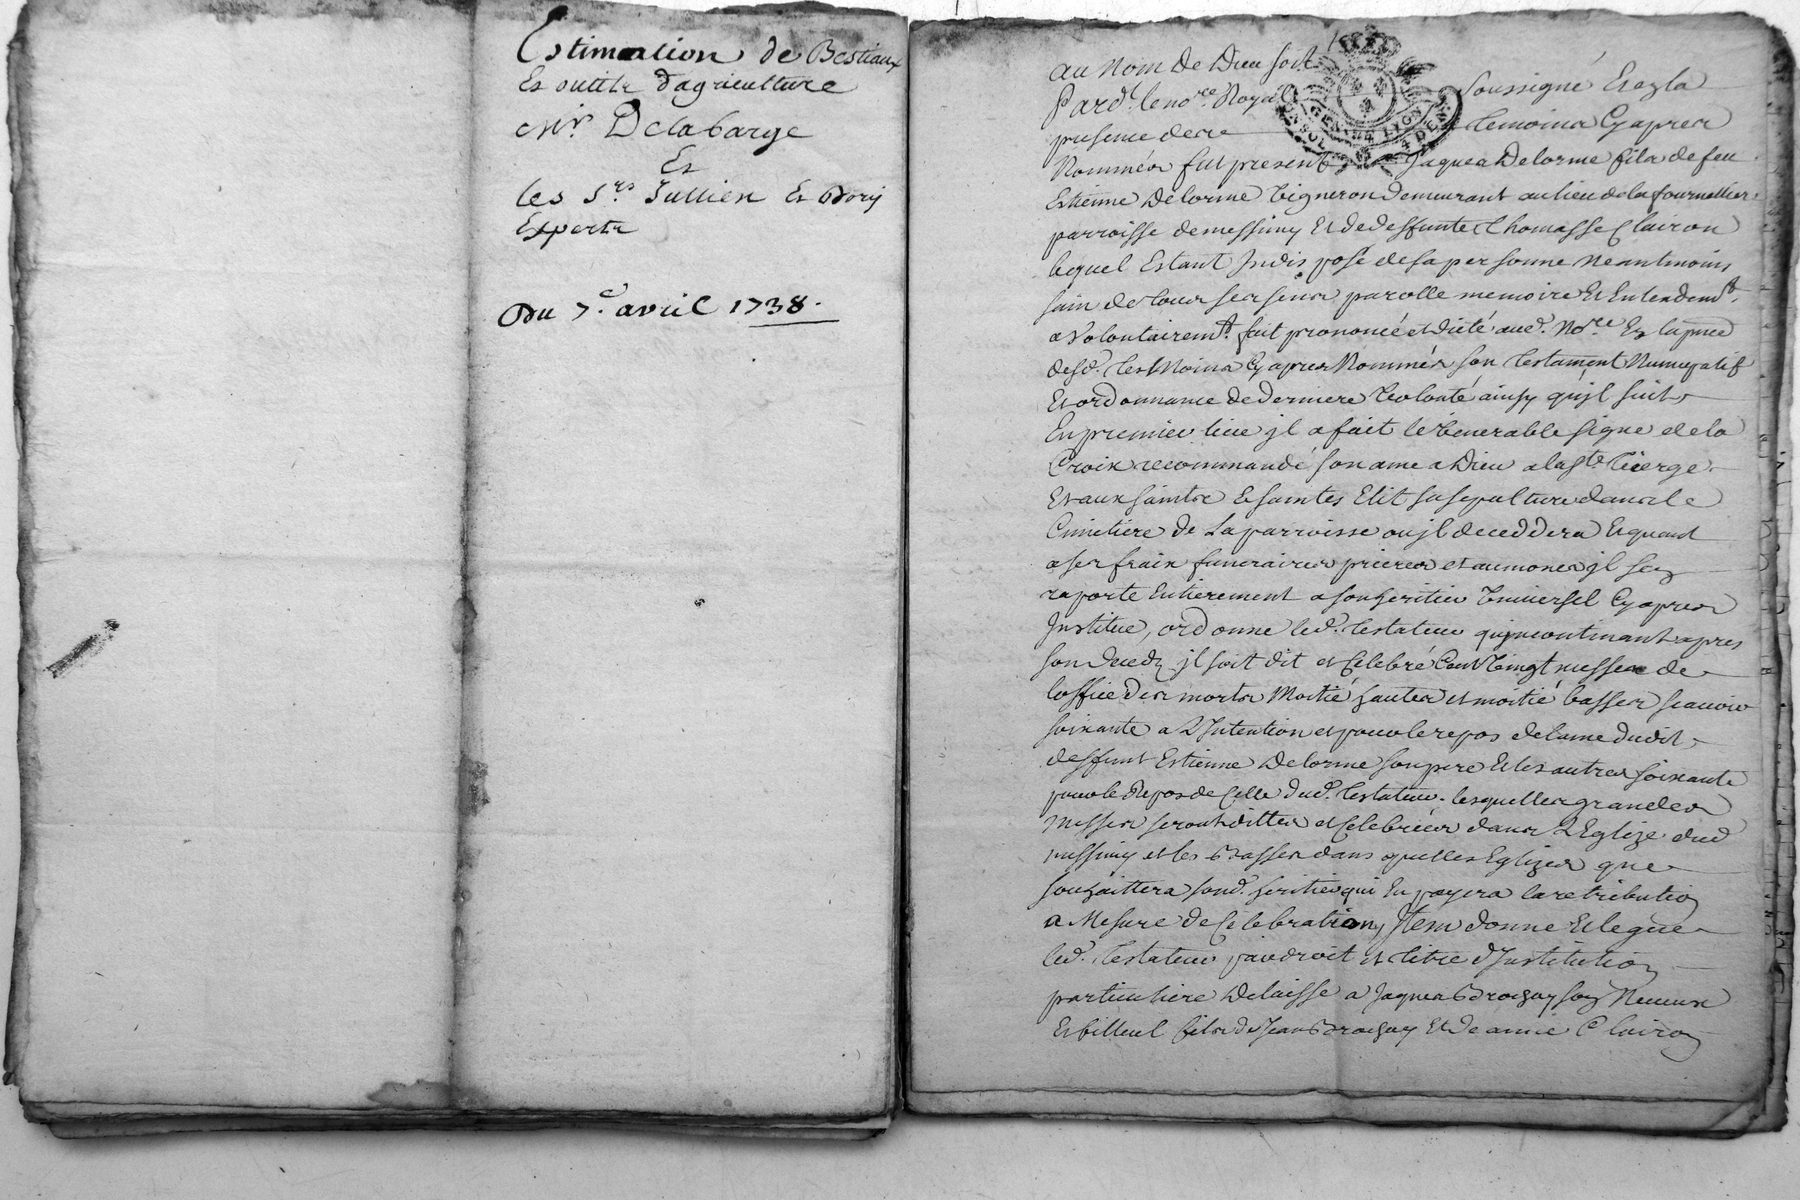 Estimation de Bestiaux
Et outils d'agriculture
Mr. Delabarge
Et
les Srs. Jullien Et Dorij
Experts
Du 7e. avril 1738.
au Nom de Dieu soit
Pard.t le no.re Royal soussigné Et en la
presence de temoins Cy apres
Nommés fut present Jaques Delorme fils de feu
Estienne Delorme Vigneron demeurant au lieu de la fournellier
parroisse de messimy Et de deffunte Thomasse Clairon
lequel Estant Indisposé de sa personne Neantmoins
sain de tous ses sens parolle memoire Et Entendem.t
a Volontairem.t fait prononcé et dicté aud. No.re En la pnce
desd. tesmoins Cy apres Nommés son testament Nuncupatif
Et ordonnance de derniere Volonté ainsy qu'jl suit
En premier lieu jl a fait le Venerable signe de la
Croix recommandé son ame a Dieu a la Ste Vierge
Et aux saints Et saintes Elit sa sepulture dans le
Cimetiere de La parroisse ou jl deceddera Et quant
a ses fraix funeraires prieres et aumones jl s'en
raporte Entierement a son heritier Universel Cy apres
Institué, ordonne led. testateur qu'jncontinant apres
son deceds jl soit dit et Celebré Cent Vingt messes de
l'office des morts Moitié hautes et moitié basses scauoir
soixante a L'Intention et pour le repos de l'ame dudit
deffunt Estienne Delorme son pere Et les autres soixante
pour le Repos de Celle dud. testateur. lesquelles grandes
Messes seront dittes et Celebrées dans L'Eglize dud
messimy et les Basses dans quelles Eglizes que
souhaittera sond. heritier qui En payera la retribution
a Mesure de Celebration, Item donne Et legue
led. testateur par droit et titre d'Institution
particuliere Delaisse a Jaques Brochay son Neueux
Et filleul fils de Jean Brochay Et de anne Clairon